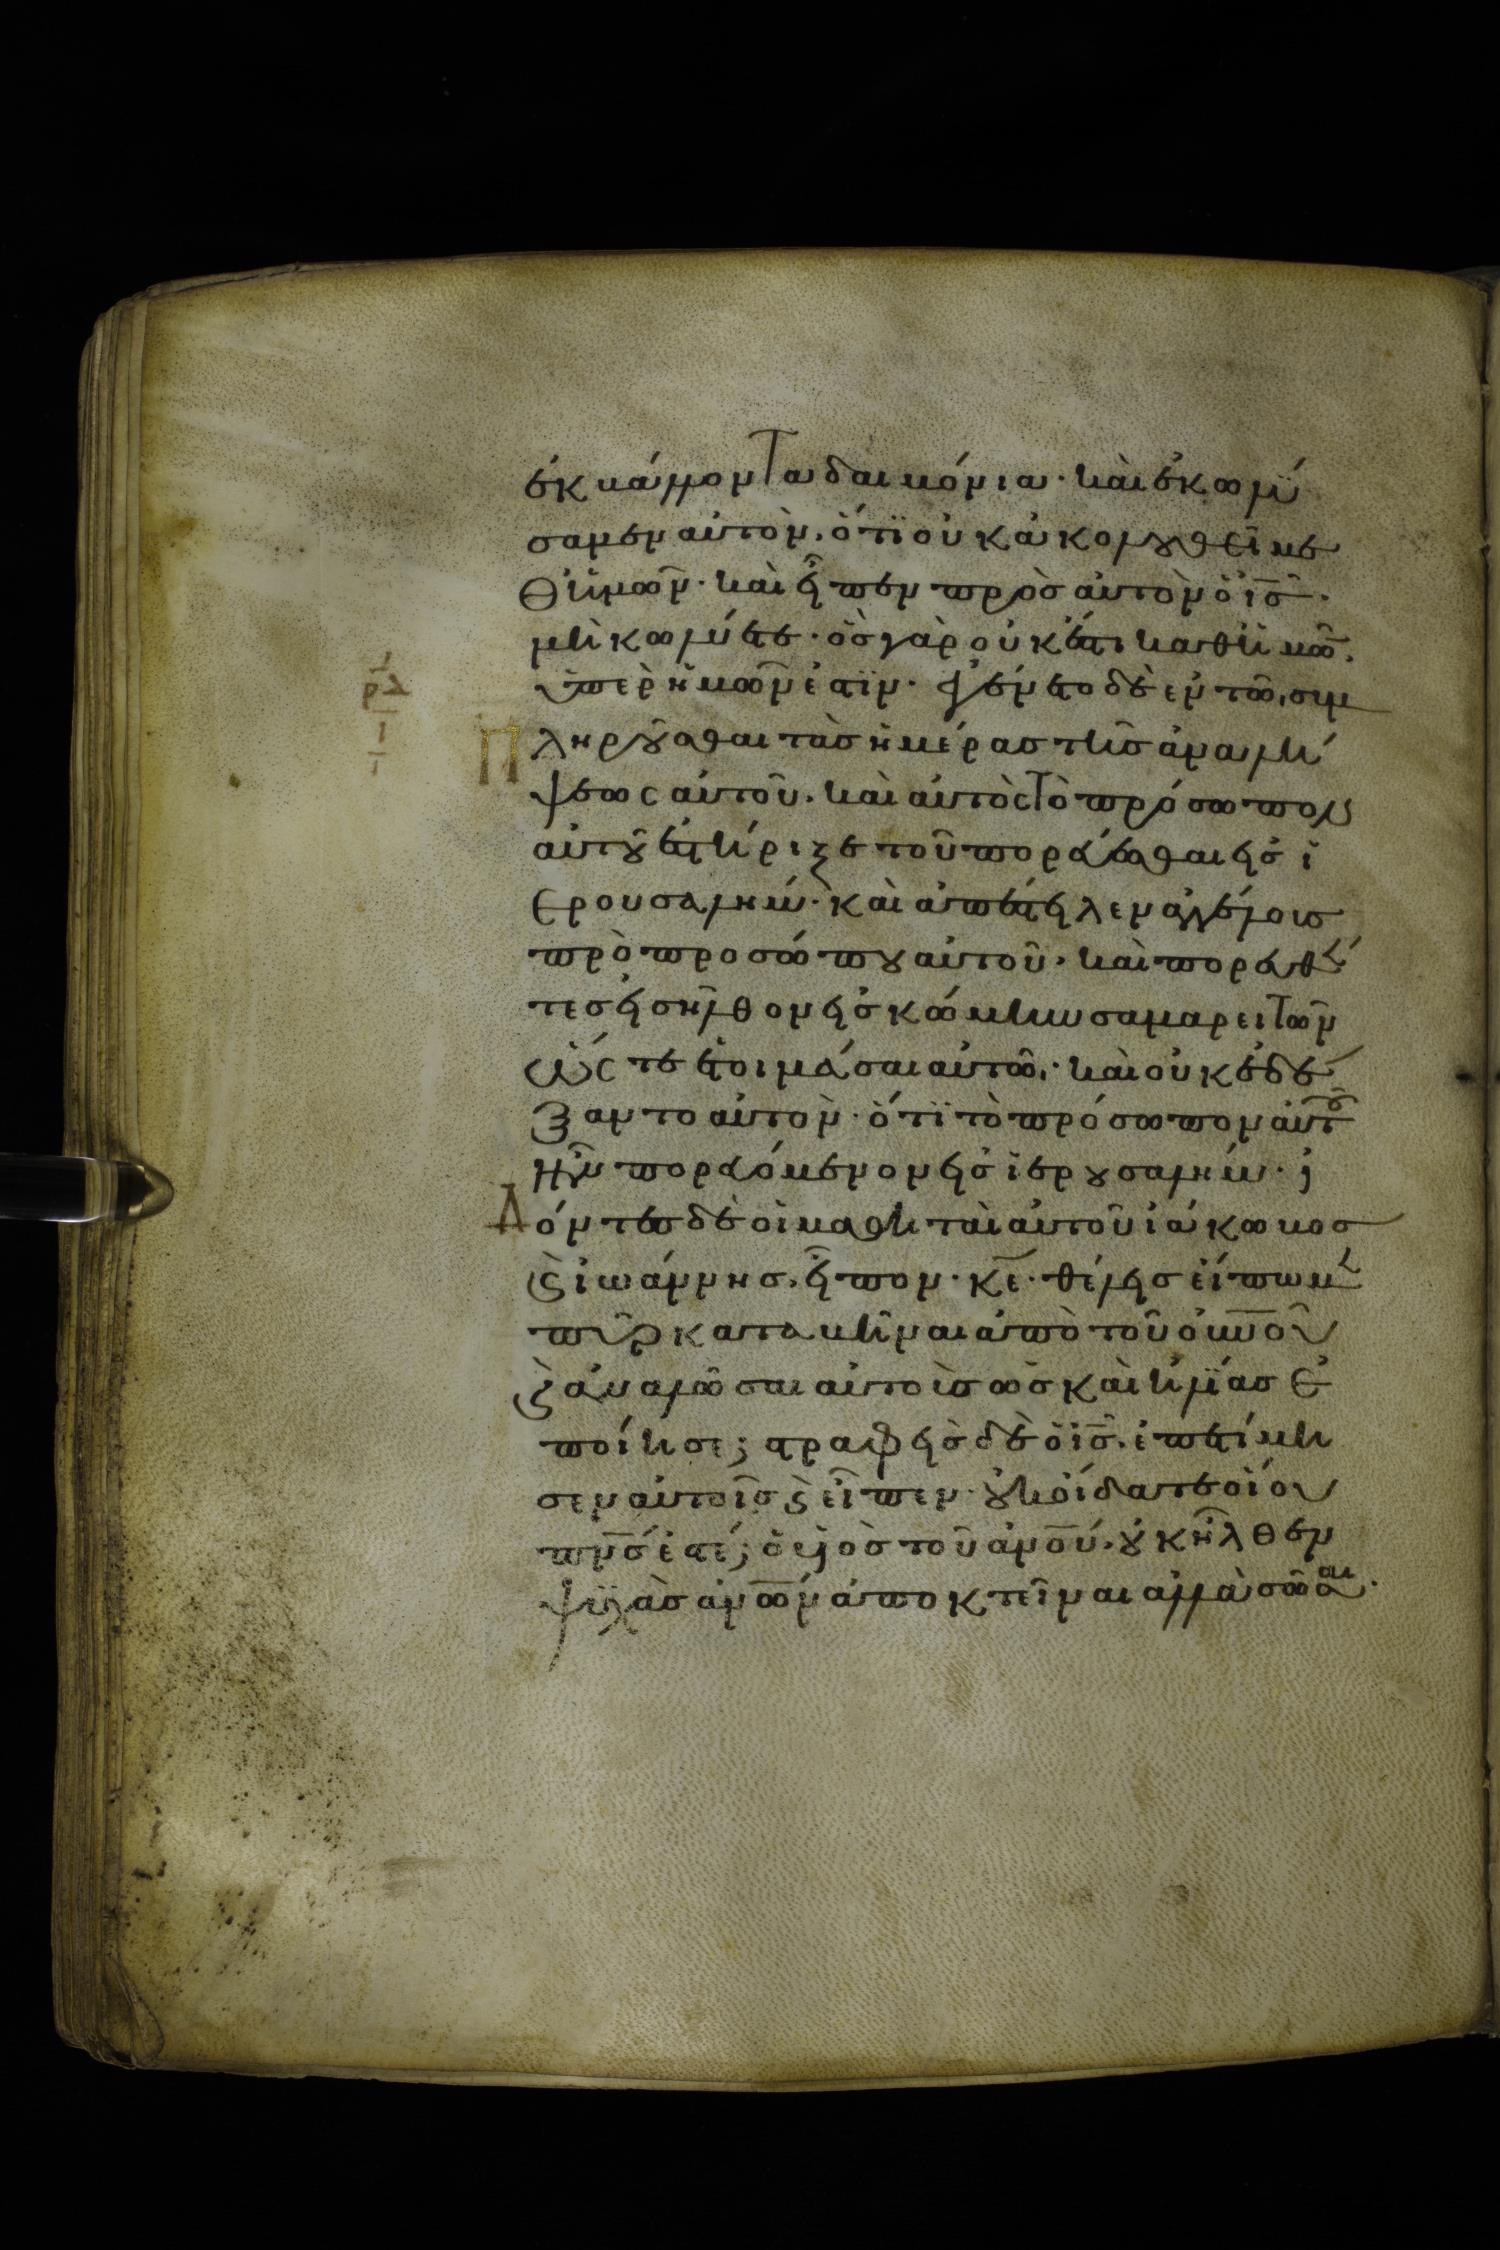 ἐκβάλλοντα δαιμόνια· καὶ ἐκωλύ
σαμεν αὐτὸν· ὅτι οὐκ ἀκολουθεῖ με
θ ἡμῶν· καὶ εἶπεν πρὸς αὐτὸν ὁ ἰς̅·
μὴ κωλύετε· ὃς γὰρ οὐκ ἔστι καθ ἡμῶν·
ὑπὲρ ἡμῶν ἐστιν· ἐγένετο δὲ ἐν τῶ συμ
πληροῦσθαι τὰς ἡμέρας τῆς ἀναλή
ψεως αὐτοῦ· καὶ αὐτὸς τὸ πρόσωπον
αὐτοῦ ἐστήριξε τοῦ πορεύεσθαι εἰς ἱ
ερουσαλήμ· καὶ ἀπέστειλεν ἀγγέλους
πρὸ προσώπου αὐτοῦ· καὶ πορευθέν
τες εἰσῆλθον εἰς κώμην σαμαρειτῶν
ὥς τε ἑτοιμάσαι αὐτῶ· καὶ οὐκ ἐδέ
ξαντο αὐτὸν· ὅτι τὸ πρόσωπον αὐτοῦ
ἦν πορευόμενον εἰς ἱερουσαλήμ· ἰ
δόντες δὲ οἱ μαθηταὶ αὐτοῦ ἰάκωβος
ϗ ἰωάννης· εἶπον· κε̅· θέλεις εἴπωμεν
πῦρ καταβῆναι ἀπὸ τοῦ οὐνοῦ
ϗ ἀναλῶσαι αὐτοὺς ὡς καὶ ἠλίας ἐ
ποίησε; στραφεὶς δὲ ὁ ἰς̅· ἐπετίμη
σεν αὐτοῖς ϗ εἶπεν· οὐκ οἴδατε οἵου
πνς̅ ἐστέ; ὁ υἱὸς τοῦ ἀνου̅· οὐκ ἦλθεν
ψυχὰς ἀνων̅ ἀποκτεῖναι ἀλλὰ σῶσαι·